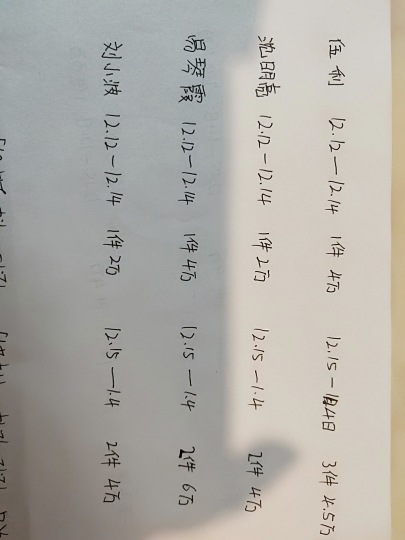 伍利 12.12—12.14 1件 4万 12.15—1.4日 3件 4.5万
沈明亮 12.12—12.14 1件 2万 12.15—1.4 2件 4万
易琴霞 12.12—12.14 1件 4万 12.15—1.4 2件 6万
刘小波 12.12—12.14 1件 2万 12.15—1.4 2件 4万